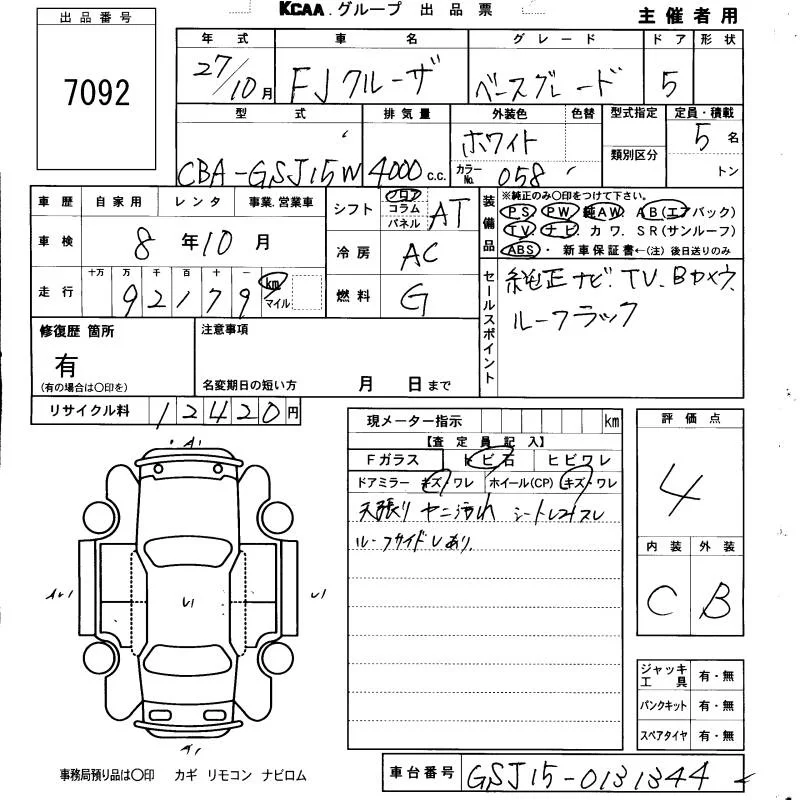 KCAA.グループ 出品票
主催者用
出品番号
7092
年式 車名 グレード ドア 形状
27/10月 FJクルーザ ベースグレード 5
型式 排気量 外装色 色替 型式指定 定員・積載
CBA-GSJ15W 4000c.c. ホワイト 5名
カラーNo. 058 類別区分 トン
車歴 自家用 レンタ 事業.営業車
車検 8年10月
走行 十万 万 千 百 十 一
92179 km マイル
シフト フロア コラム パネル AT
冷房 AC
燃料 G
装備品
※純正のみ○印をつけて下さい。
PS PW 純AW. AB(エアバック)
TV ナビ カワ. SR(サンルーフ)
ABS・ 新車保証書←(注)後日送りのみ
セールスポイント
純正ナビ.TV.Bカメラ.
ルーフラック
修復歴 箇所
有
(有の場合は○印を)
注意事項
名変期日の短い方 月 日まで
リサイクル料 12420円
現メーター指示 km
【査定員記入】
Fガラス トビ石 ヒビワレ
ドアミラー キズ・ワレ ホイール(CP) キズ・ワレ
天張り ヤニ汚れ シートレコゲスレ
ルーフサイドレあり.
評価点
4
内装 外装
C B
A1
A1
ジャッキ工具 有・無
パンクキット 有・無
スペアタイヤ 有・無
事務局預り品は○印 カギ リモコン ナビロム
車台番号 GSJ15-0131344